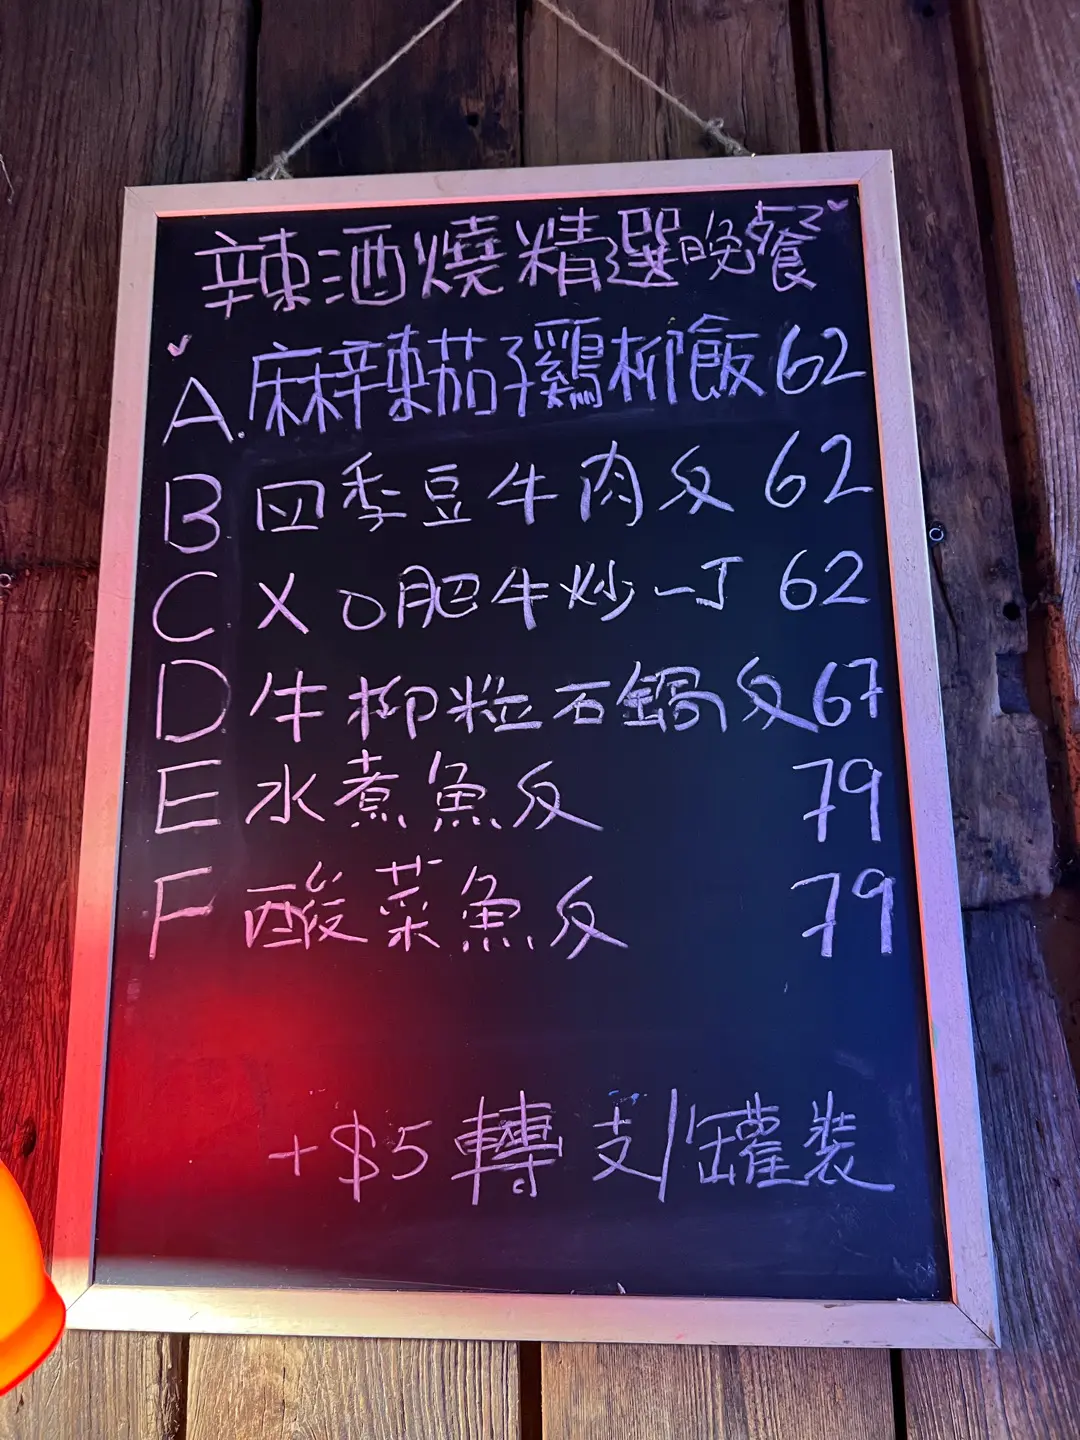 辣酒燒精選晚餐
A. 麻辣茄子鷄柳飯 62
B 四季豆牛肉反 62
C XO肥牛炒一丁 62
D 牛柳粒石鍋反 67
E 水煮魚反 79
F 酸菜魚反 79
+$5 轉支/罐裝